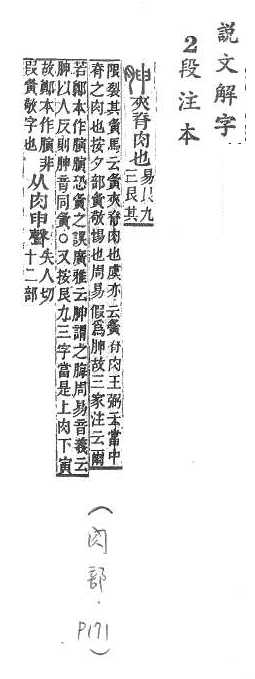 說文解字
2段注本
胂 夾脊肉也 易艮九
三艮其
限裂其夤馬云夤夾脊肉也虞亦云夤脊肉王弼云當中
脊之肉也按夕部夤敬惕也周易假爲胂故三家注云爾
若鄭本作𦟘𦟘恐夤之誤廣雅云胂謂之脢周易音義云
胂以人反則胂音同夤○又按艮九三字當是上肉下寅
故鄭本作𦟘非
叚夤敬字也 从肉申聲 失人切
十二部
(肉部.P171)